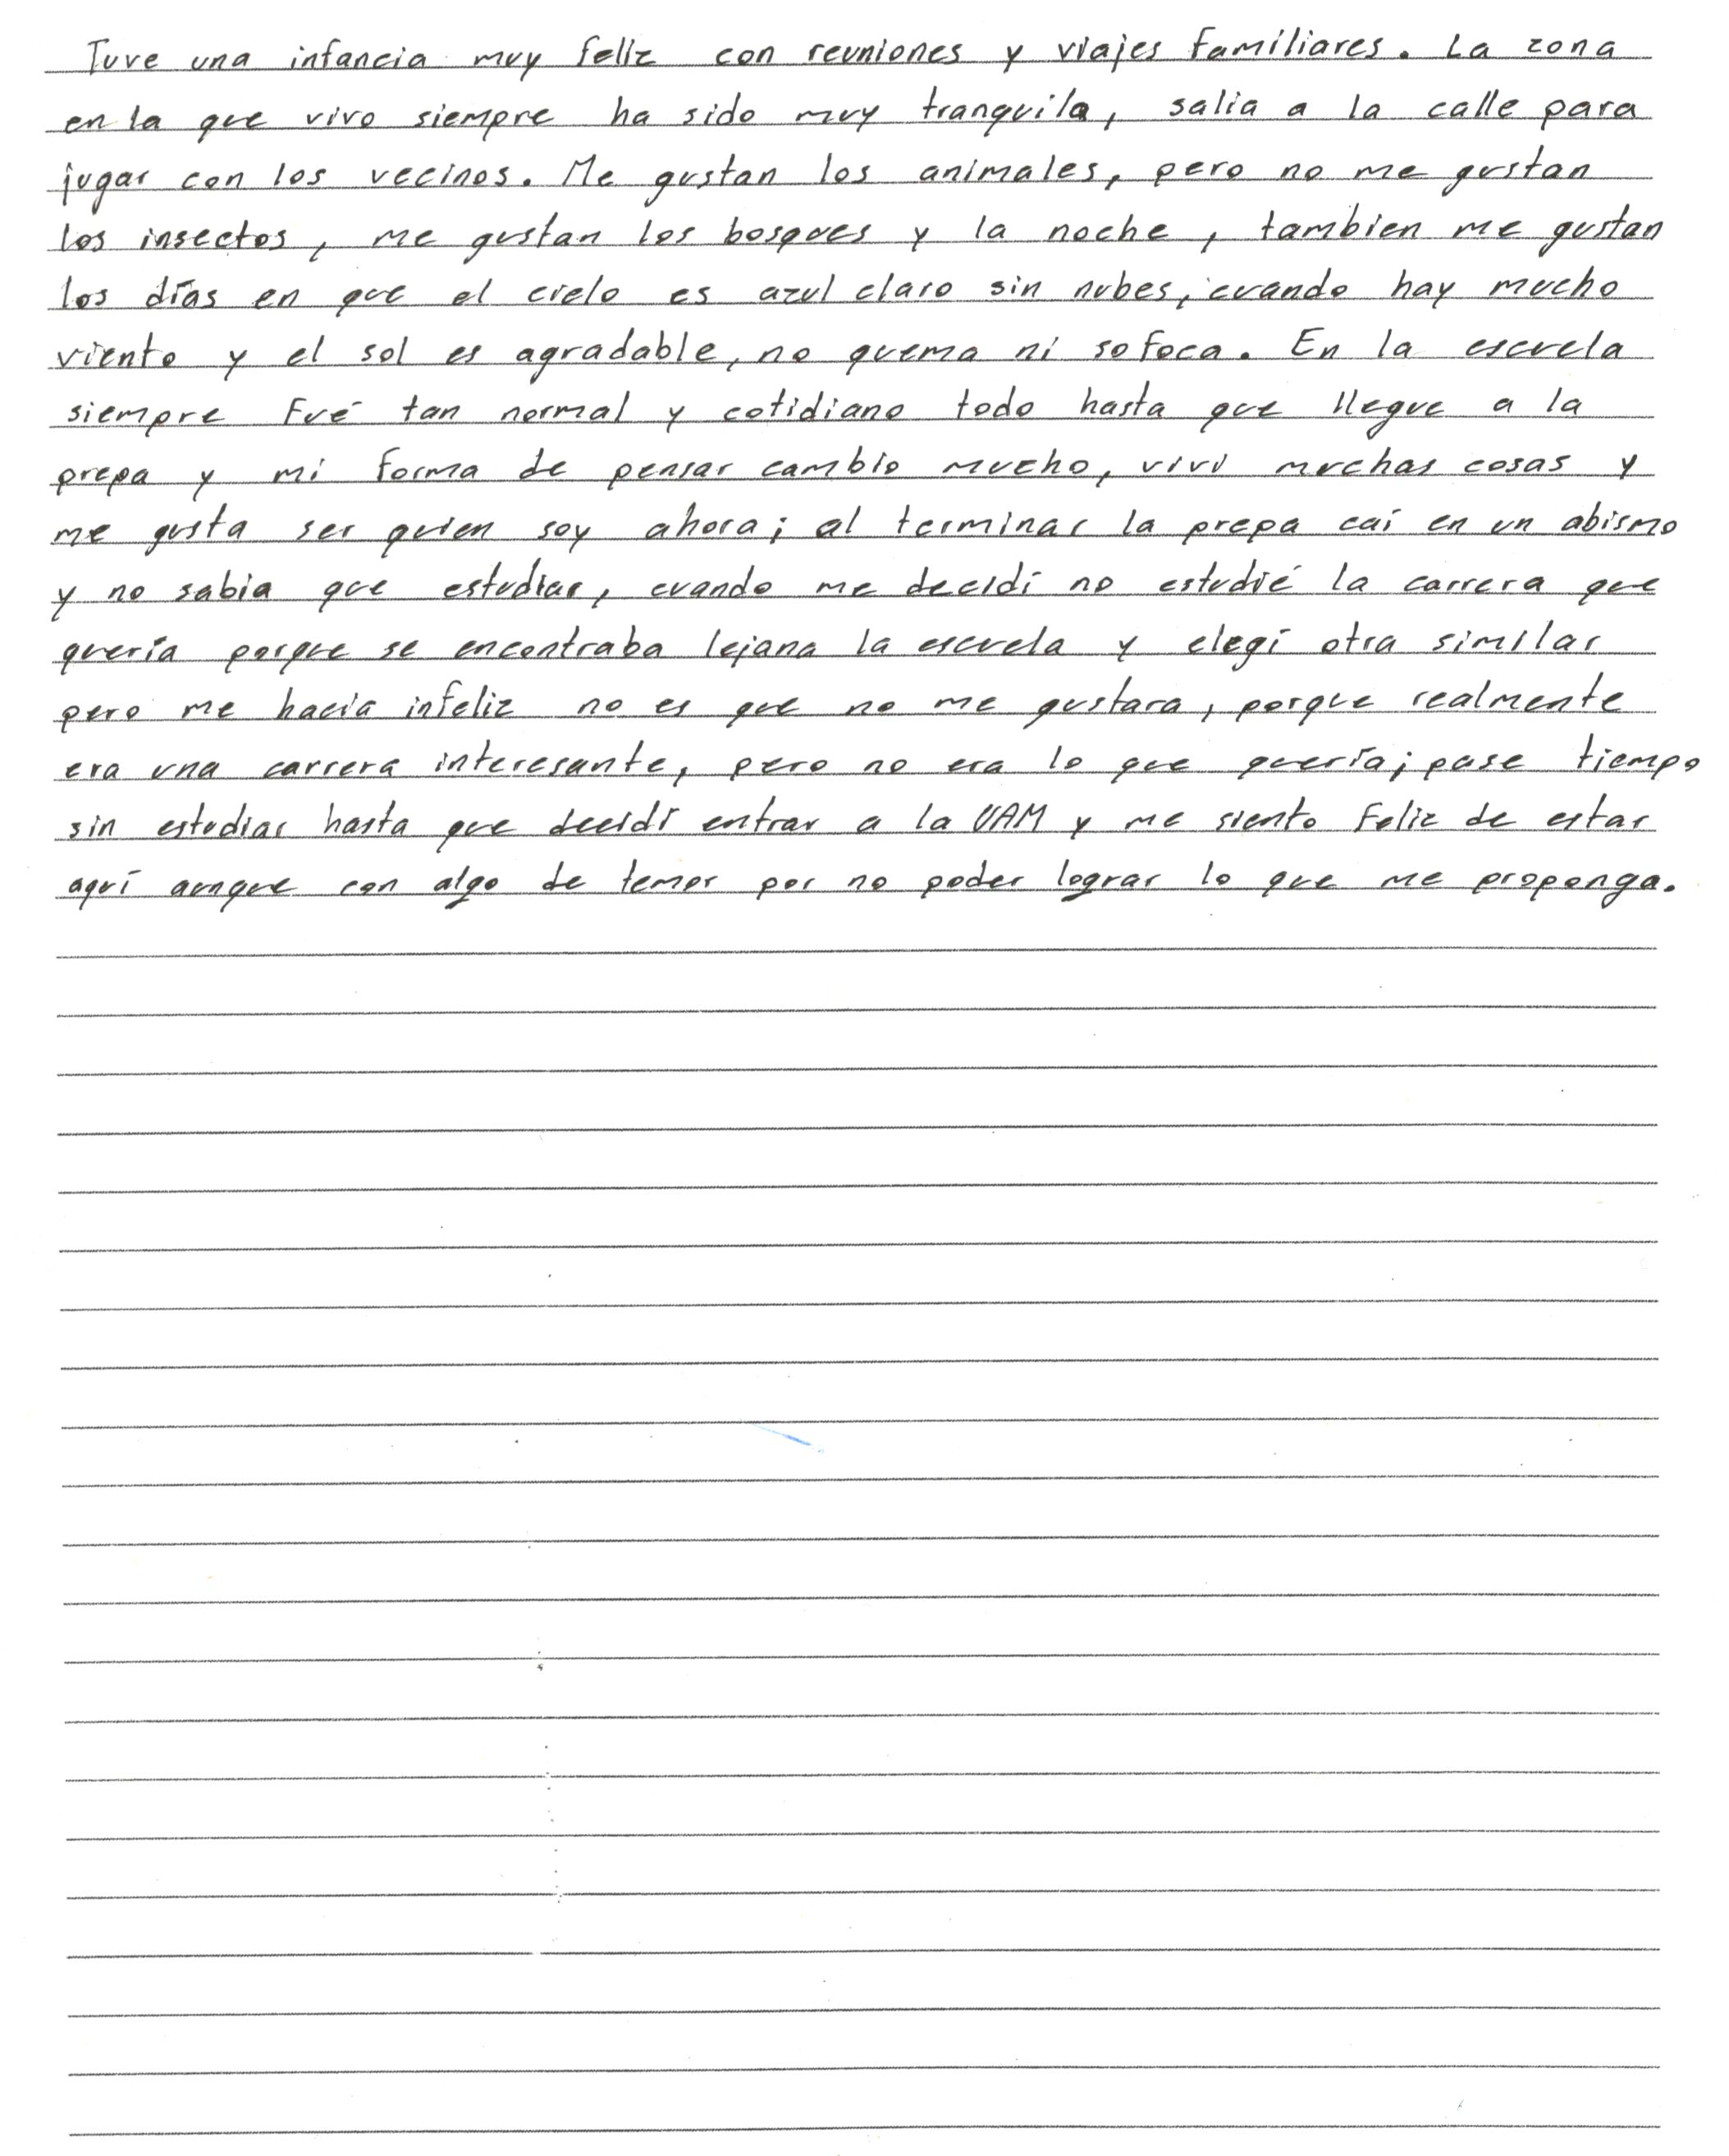 Tuve una infancia muy feliz con reuniones y viajes familiares. La zona
en la que vivo siempre ha sido muy tranquila, salia a la calle para
jugar con los vecinos. Me gustan los animales, pero no me gustan
los insectos, me gustan los bosques y la noche, tambien me gustan
los días en que el cielo es azul claro sin nubes, cuando hay mucho
viento y el sol es agradable, no quema ni sofoca. En la escuela
siempre fué tan normal y cotidiano todo hasta que llegue a la
prepa y mi forma de pensar cambio mucho, viví muchas cosas y
me gusta ser quien soy ahora; al terminar la prepa caí en un abismo
y no sabia que estudiar, cuando me decidí no estudié la carrera que
quería porque se encontraba lejana la escuela y elegí otra similar
pero me hacía infeliz no es que no me gustara, porque realmente
era una carrera interesante, pero no era lo que quería; pase tiempo
sin estudiar hasta que decidí entrar a la UAM y me siento feliz de estar
aquí aunque con algo de temor por no poder lograr lo que me proponga.